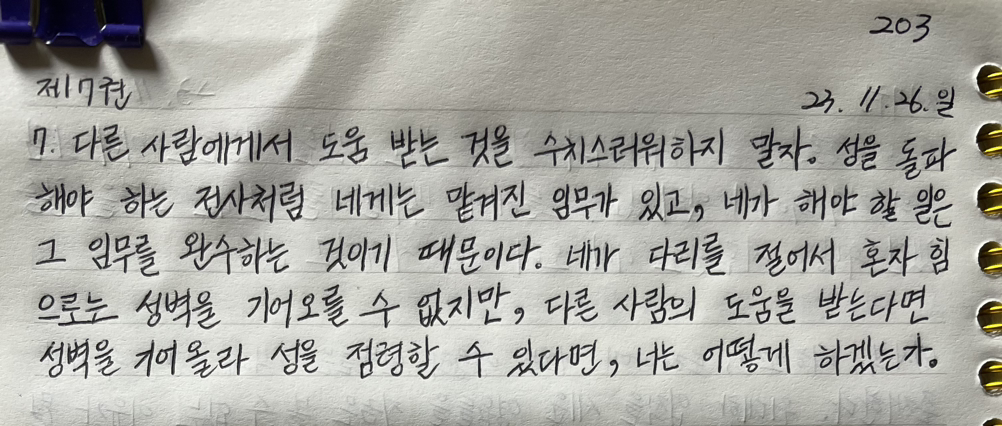 203
제17권
23. 11. 26. 일
7. 다른 사람에게서 도움 받는 것을 수치스러워하지 말자. 성을 돌파
해야 하는 전사처럼 네게는 맡겨진 임무가 있고, 네가 해야 할 일은
그 임무를 완수하는 것이기 때문이다. 네가 다리를 절어서 혼자 힘
으로는 성벽을 기어오를 수 없지만, 다른 사람의 도움을 받는다면
성벽을 기어 올라 성을 점령할 수 있다면, 너는 어떻게 하겠는가.